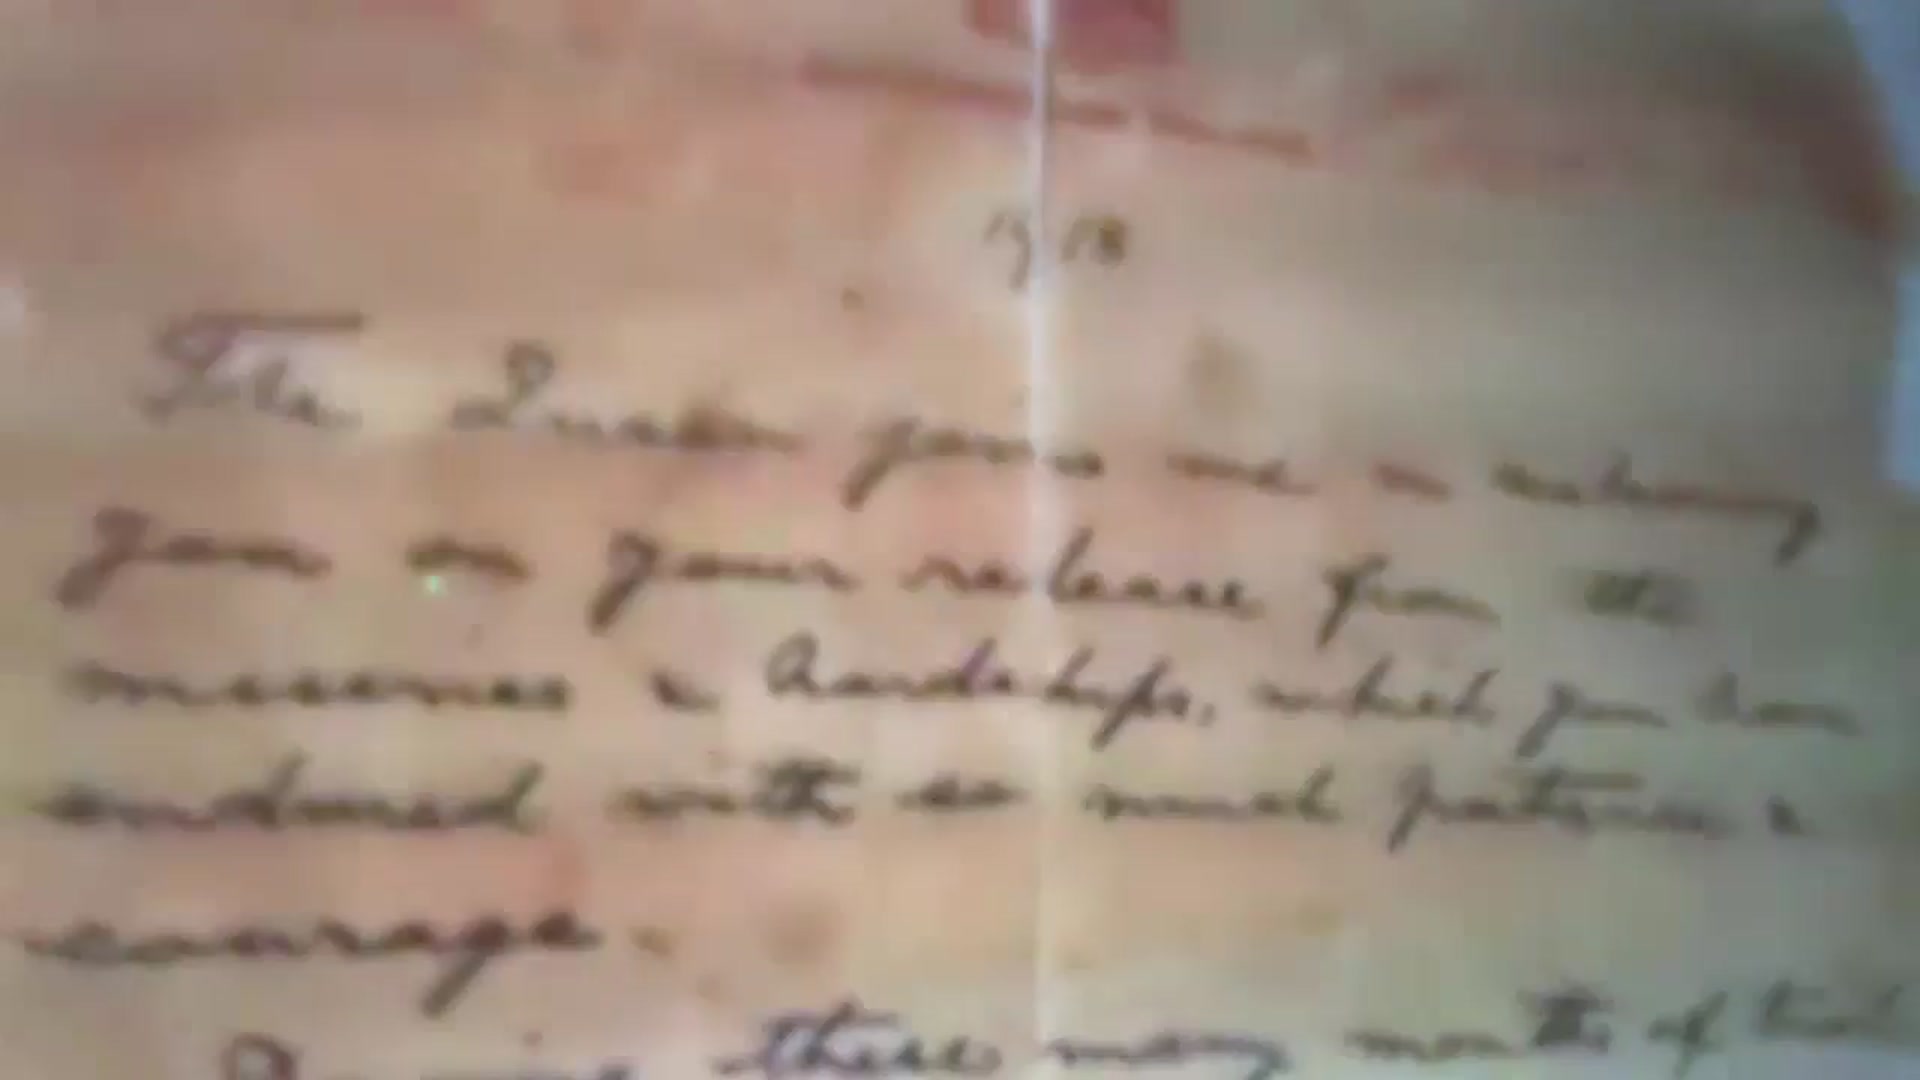 1918
The Queen joins me in welcoming
you on your release from the
miseries & hardships, which you have
endured with so much patience &
courage.
During these many months of trial